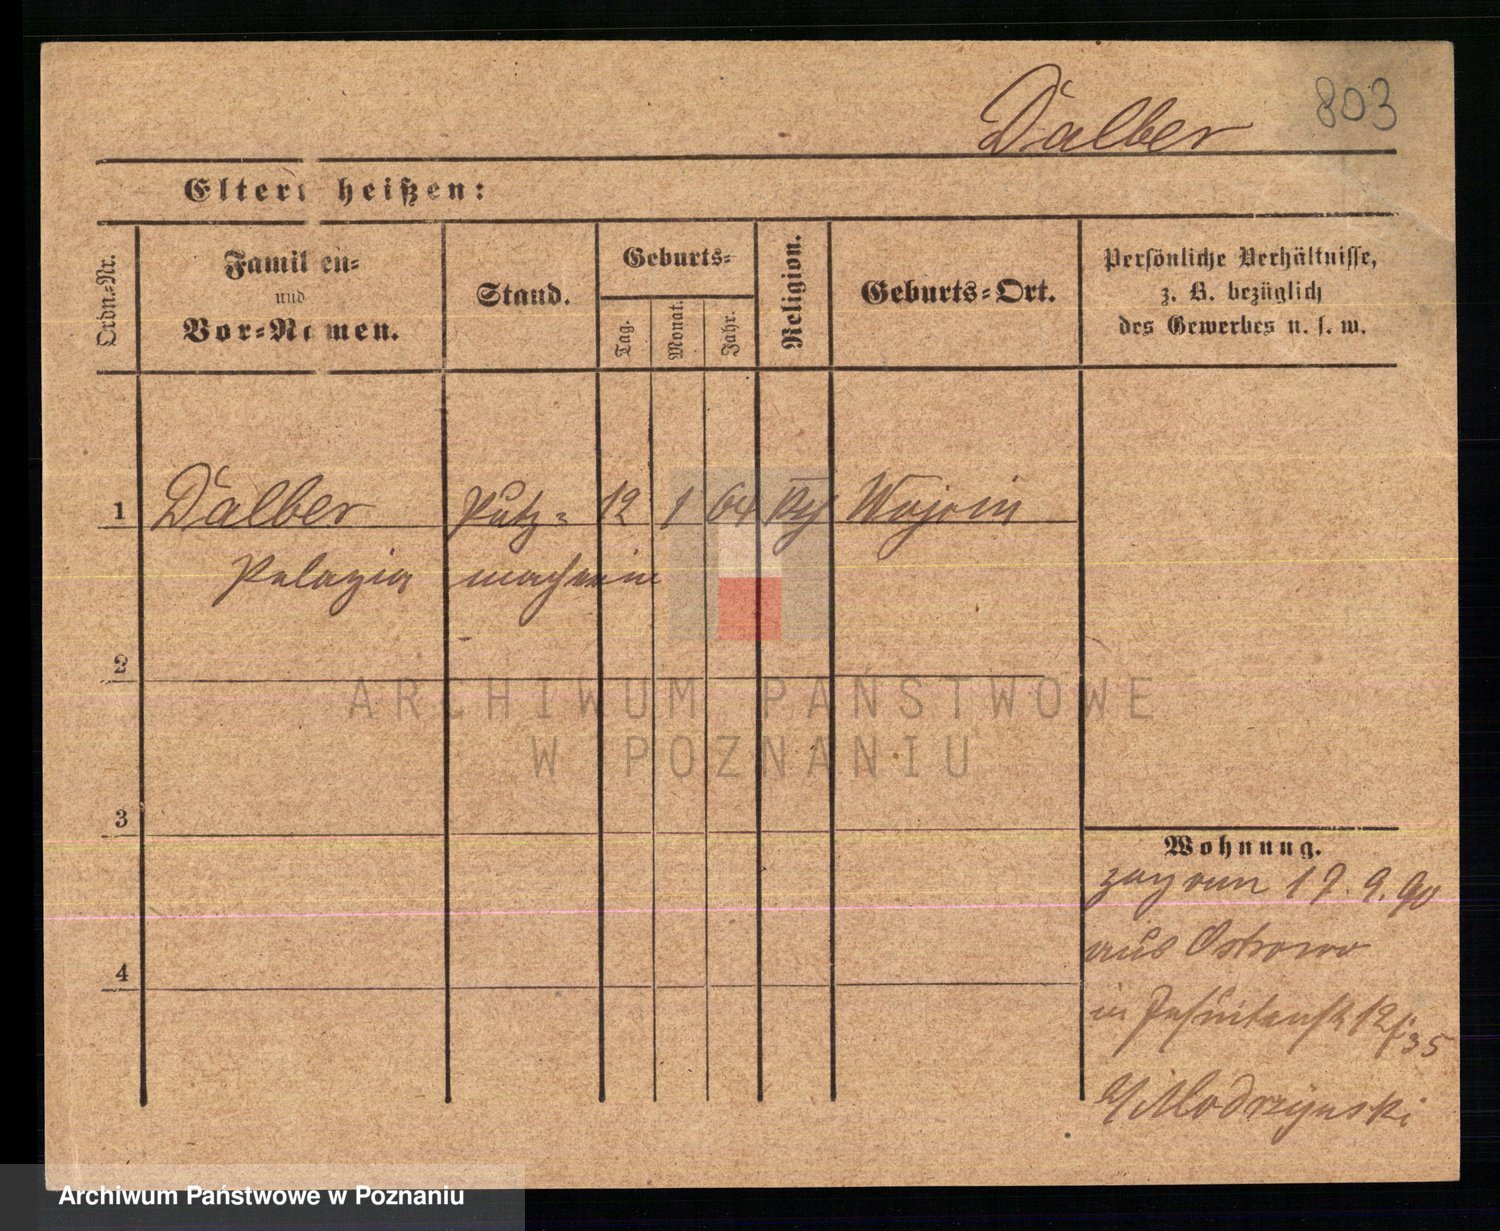 803
Dalber
Eltern heißen:
Ordn.-Nr.
Familien-
und
Vor-Namen.
Stand.
Geburts-
Tag.
Monat.
Jahr.
Religion.
Geburts-Ort.
Persönliche Verhältnisse,
z. B. bezüglich
des Gewerbes u. s. w.
1 Dalber Putz- 12 1 64 Wojcin
Pelagia macherin
2
3
4
Wohnung.
zog am 17.9.90
aus Ostrowo
in Jesuitenstr 12
b/ Modrzynski
ARCHIWUM PAŃSTWOWE
W POZNANIU
Archiwum Państwowe w Poznaniu